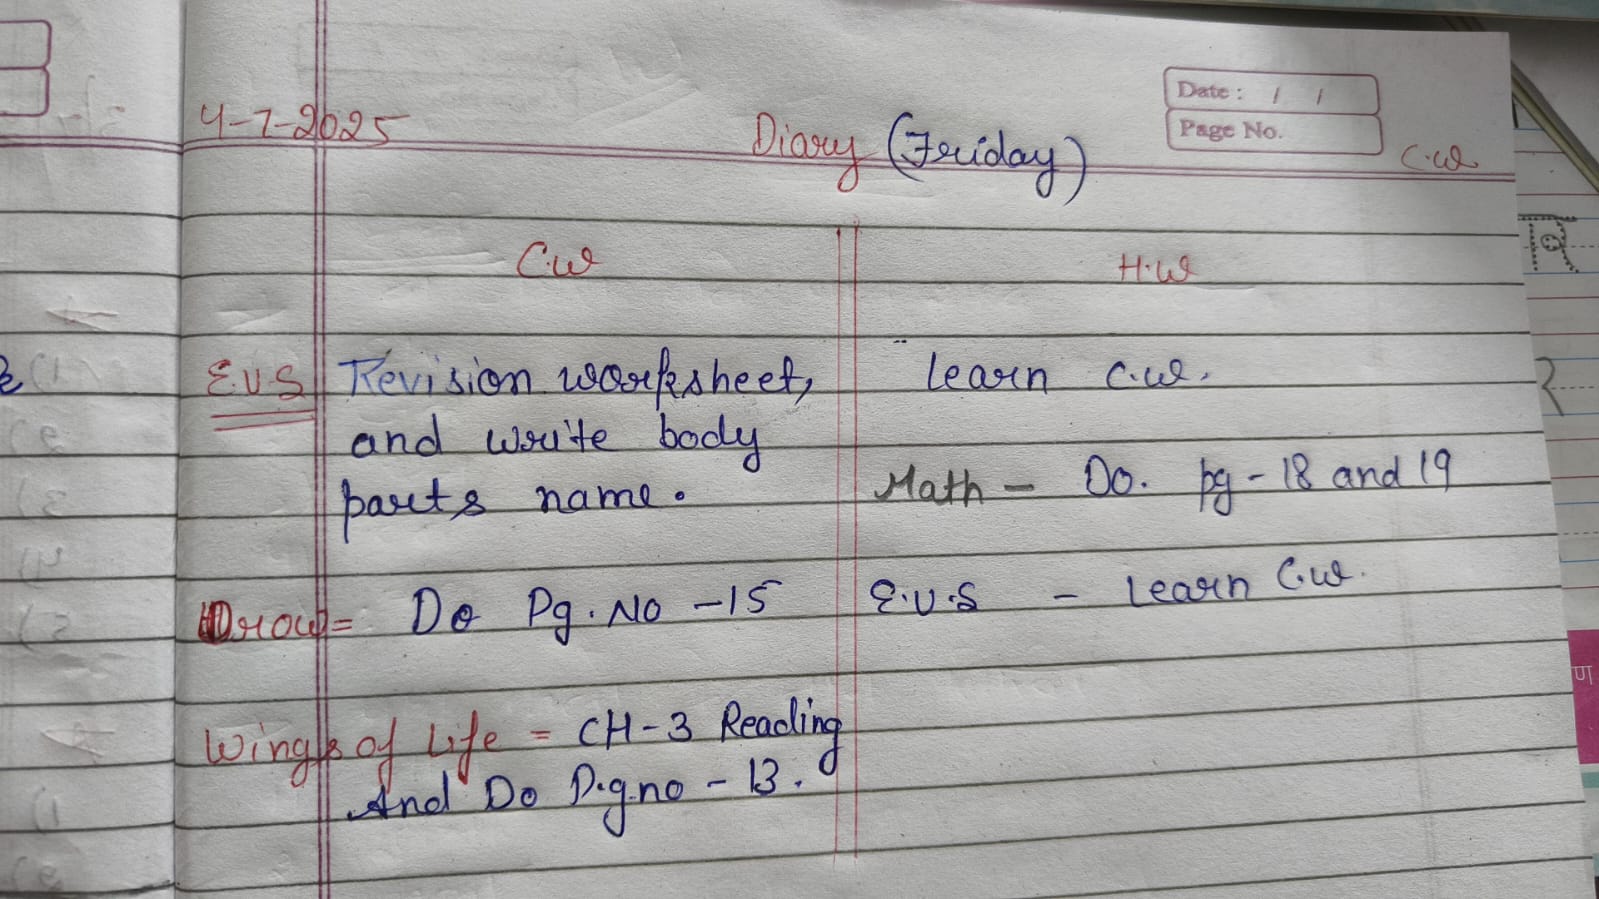 4-7-2025
Diary (Friday)
Date : / /
Page No.
C.W
C.W
H.W
E.V.S Revision worksheet,
and write body
parts name.
learn C.W.
Math - Do. pg - 18 and 19
Drow = Do Pg. No - 15
E.V.S - Learn C.W.
Wings of Life = CH - 3 Reading
And Do P.g.no - 13.